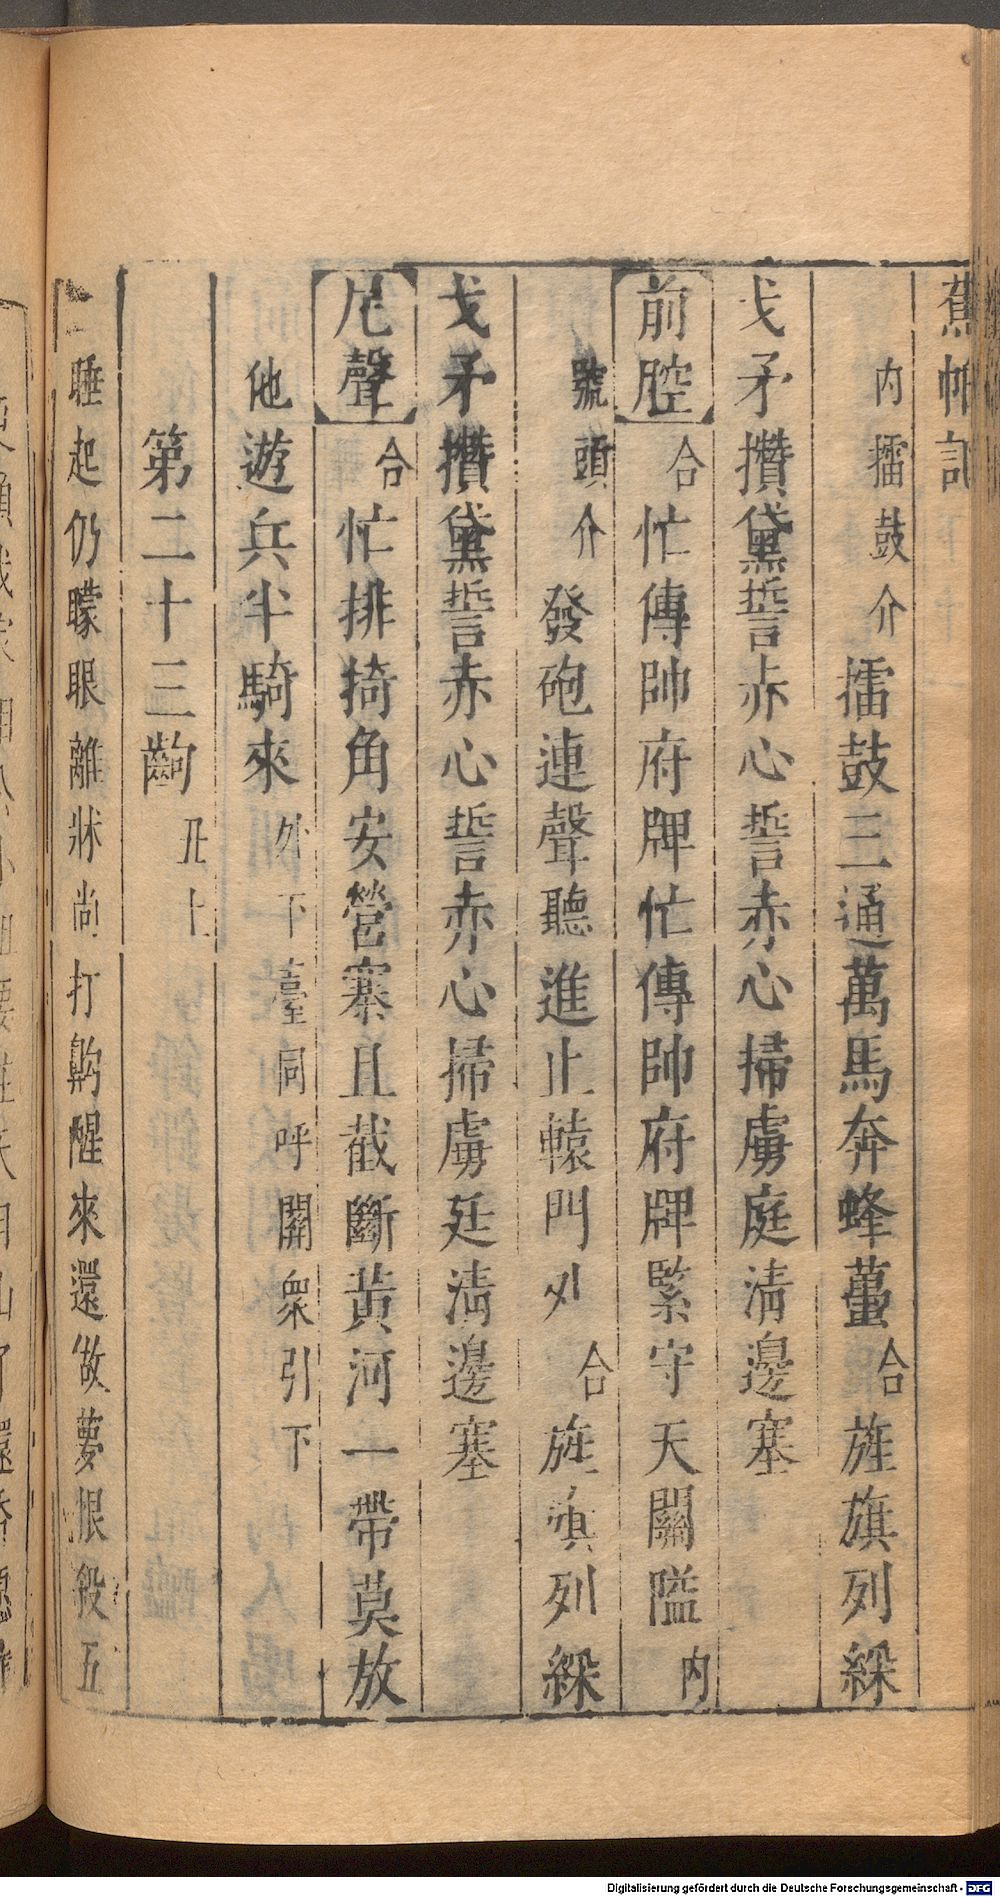 蕉帕記
内擂鼓介擂鼓三通萬馬奔蜂蠆合旌旗列綵
戈矛攢黛誓赤心誓赤心掃虜庭淸邊塞
前腔合忙傳帥府牌忙傳帥府牌緊守天關隘内
號頭介發砲連聲聽進止轅門外合旌旗列綵
戈矛攢黛誓赤心誓赤心掃虜廷淸邊塞
尾聲合忙排掎角安營寨且截斷黃河一帶莫放
他遊兵半騎來外下臺同呼關衆引下
第二十三齣丑上
睡起仍矇眼離牀尚打齁醒來還做夢恨殺五
Digitalisierung gefördert durch die Deutsche Forschungsgemeinschaft - DFG